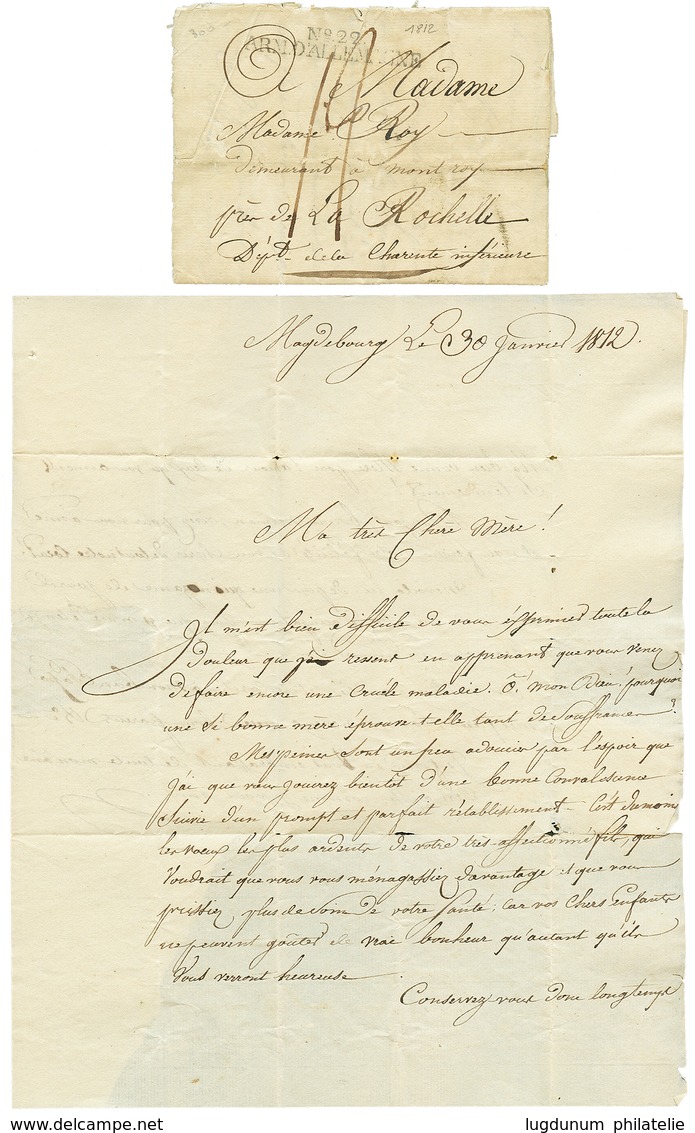 300
1812
No. 22
ARM. D'ALLEMAGNE
A Madame
Madame Roy
demeurant à mont roy
près de La Rochelle
Dépt. de la Charente inférieure
Magdebourg Le 30 Janvier 1812.
Ma très Chère Mère !
Il m'est bien difficile de vous exprimer toute la
douleur que j'ai ressent en apprenant que vous venez
de faire encore une cruéle maladie. ô mon Dieu, pourquoi
une si bonne mère éprouve-t-elle tant de souffrances ?
Mes peines sont un peu adoucies par l'espoir que
j'ai que vous jouirez bientôt d'une bonne Convalessence
suivie d'un prompt et parfait rétablissement. C'est du moins
les vœux les plus ardents de votre très-affectionné fils, qui
voudrait que vous vous ménagassiez davantage et que vous
prissiez plus de soin de votre santé ; car vos chers Enfants
ne peuvent goûter de vrai bonheur qu'autant qu'ils
vous verront heureuse.
Conservez vous donc longtemps
www.delcampe.net
lugdunum philatelie